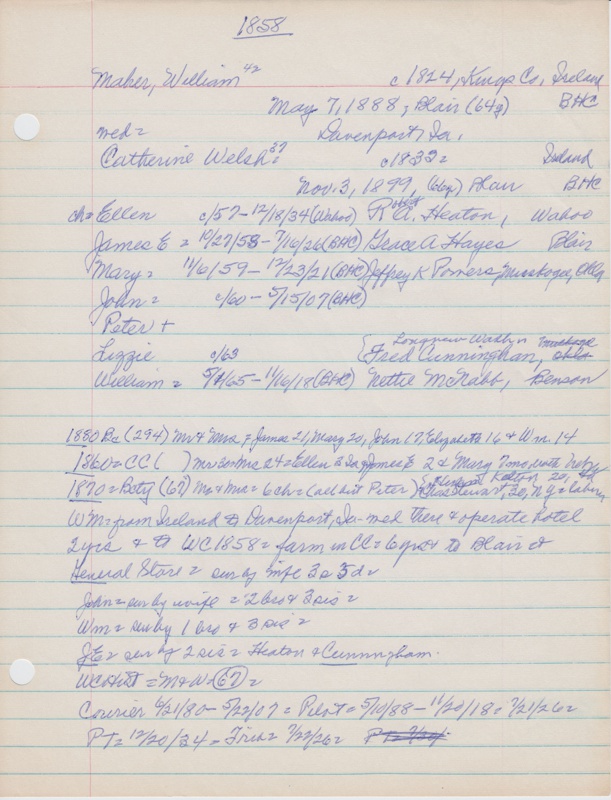 1858
Maher, William 42 c 1824, Kings Co, Ireland
May 7, 1888, Blair (64y) BHC
med = Davenport, Ia.
Catherine Welsh 37 c1833 = Ireland
Nov. 3, 1899, (66y) Blair BHC
ch = Ellen c/57 - 12/18/34 (Wahoo) Robert A. Heaton, Wahoo
James E = 10/27/58 - 7/16/26 (BHC) Grace A Hayes Blair
Mary = 11/6/59 - 12/23/21 (BHC) Jeffrey K Powers Muskoga, Okla
John = c/60 - 5/15/07 (BHC)
Peter +
Longview Wash
Lizzie c/63 Fred Cunningham,
William = 5/ /65 - 11/16/18 (BHC) Nettie McNabb, Benson
1880 Bc (294) Mr & Mrs = James 21, Mary 20, John 17, Elizabeth 16 & Wm. 14
1860 = CC ( ) Mr 30 Mrs 24 = Ellen 3 Ia James E 2 & Mary 7mo both
1870 = Boty (67) Mr & Mrs = 6 ch = (all but Peter) 20, N.Y = labor
Wm = from Ireland to Davenport, Ia - med there & operate hotel
2 yrs & to WC 1858 = farm in CC = 6 yrs & to Blair &
General Store = sur by wife 3 s 3 d =
John = sur by wife = 2 bro & 3 sis =
Wm = sur by 1 bro & 3 sis =
JE = sur by 2 sis = Heaton & Cunningham.
WC Hist = M & W (67) =
Courier 9/21/80 - 5/22/07 = Pilot = 5/10/88 - 11/20/18 = 7/21/26 =
PT = 12/20/34 - Trib = 7/22/26 =